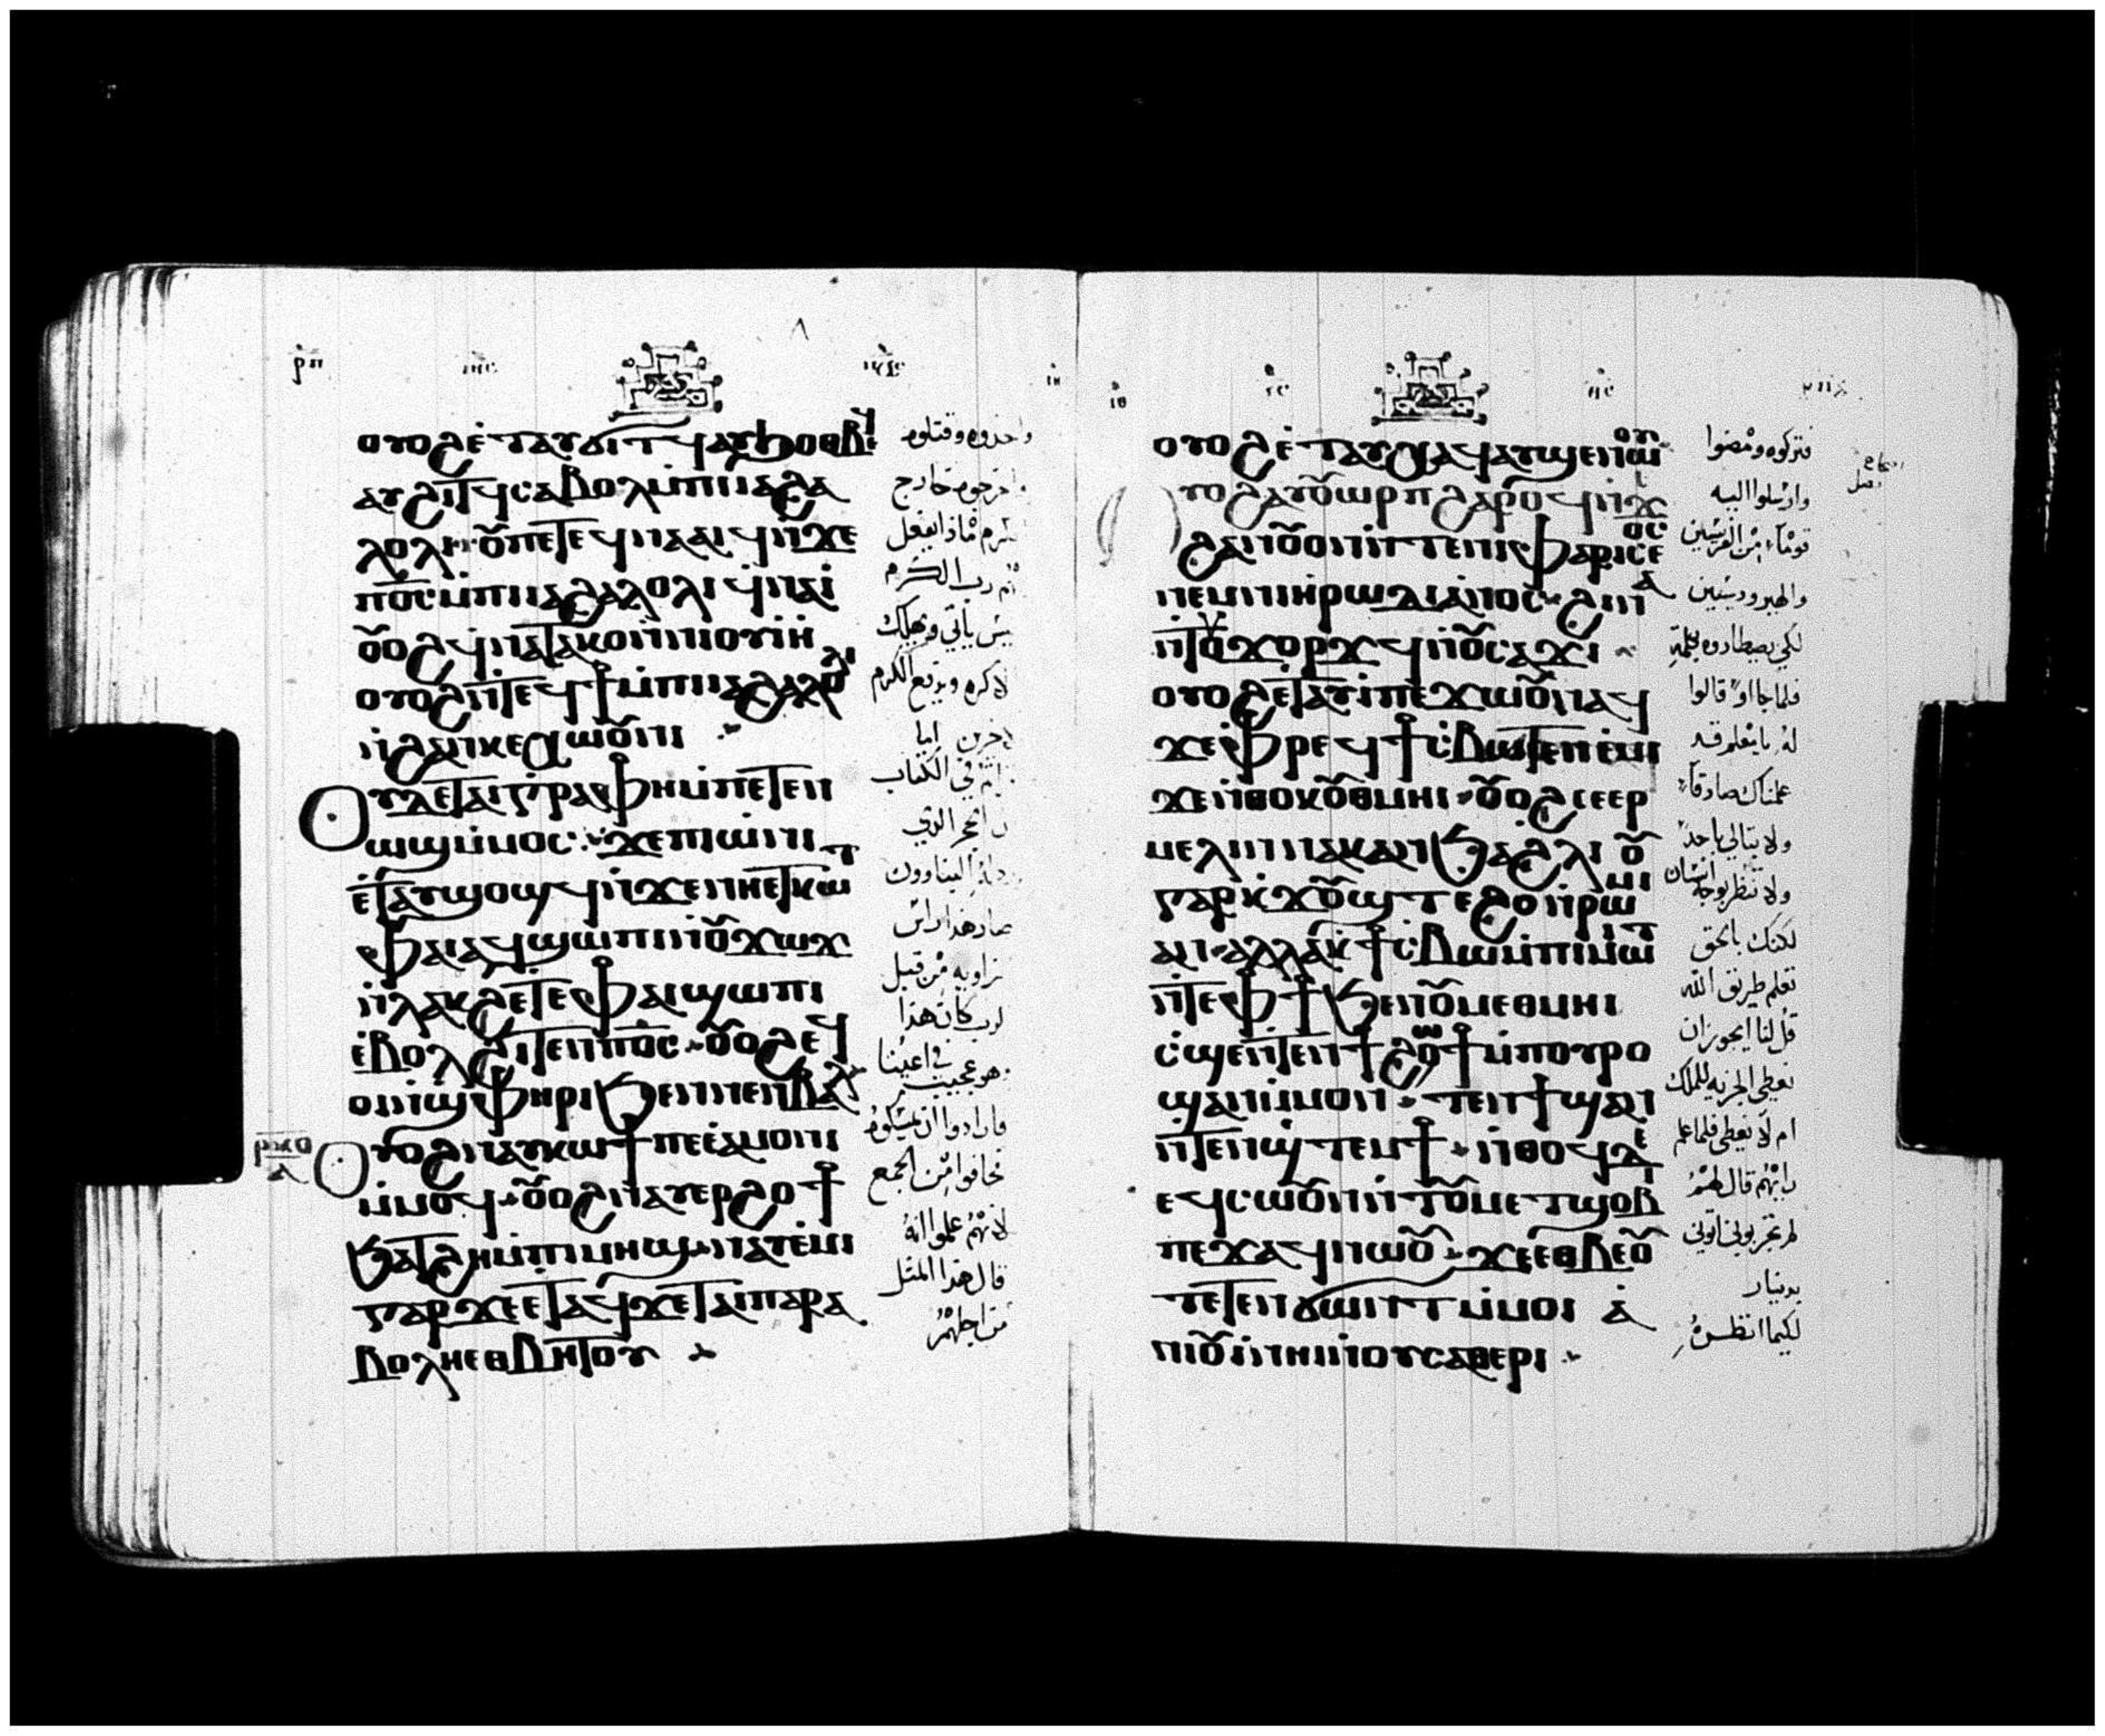 ⲟⲩⲟϩ ⲉⲧⲁⲩϭⲓⲧϥ ⲁⲩϧⲟⲑⲃⲉϥ
ⲁⲩϩⲓⲧϥ ⲥⲁⲃⲟⲗ ⲙ̀ⲡⲓⲓⲁϩⲁ
ⲗⲟⲗⲓ ⲟⲩ ⲡⲉⲧⲉϥⲛⲁⲁⲓϥ ⲛ̀ϫⲉ
ⲡ⳪ ⲙ̀ⲡⲓⲓⲁϩⲁⲗⲟⲗⲓ ϥⲛⲁⲓ̀
ⲟⲩⲟϩ ϥⲛⲁⲧⲁⲕⲟ ⲛ̀ⲛⲓⲟⲩⲓⲏ
ⲟⲩⲟϩ ⲛ̀ⲧⲉϥϯ ⲙ̀ⲡⲓⲓⲁϩⲁⲗⲟⲗⲓ
ⲛ̀ϩⲁⲛⲕⲉⲭⲱⲟⲩⲛⲓ
ⲟⲩⲇⲉ ⲧⲁⲓⲅⲣⲁⲫⲏ ⲙ̀ⲡⲉⲧⲉⲛ
ⲱϣ ⲙ̀ⲙⲟⲥ ϫⲉ ⲡⲓⲱ̀ⲛⲓ
ⲉ̀ⲧⲁⲩϣⲟϣϥ ⲛ̀ϫⲉ ⲛⲏⲉⲧⲕⲱⲧ
ⲫⲁⲓ ⲁϥϣⲱⲡⲓ ⲛ̀ⲟⲩϫⲱϫ
ⲛ̀ⲗⲁⲕϩ ⲉⲧⲉ ⲫⲁⲓ ϣⲱⲡⲓ
ⲉ̀ⲃⲟⲗ ϩⲓⲧⲉⲛ ⲡ⳪ ⲟⲩⲟϩ ϥ
ⲟⲓ ⲛ̀ϣⲫⲏⲣⲓ ϧⲉⲛ ⲛⲉⲛⲃⲁⲗ
ⲟⲩⲟϩ ⲛⲁⲩⲕⲱϯ ⲡⲉ ⲉ̀ⲁⲙⲟⲛⲓ
ⲙ̀ⲙⲟϥ ⲟⲩⲟϩ ⲛⲁⲩⲉⲣϩⲟϯ
ϧⲁⲧϩⲏ ⲙ̀ⲡⲓⲙⲏϣ ⲛⲁⲩⲉ̀ⲙⲓ
ⲅⲁⲣ ϫⲉ ⲉⲧⲁϥϫⲉ ⲧⲁⲓⲡⲁⲣⲁ
ⲃⲟⲗⲏ ⲉⲑⲃⲏⲧⲟⲩ
واخذوه وقتلوه
واخرجوه خارج
الكرم ماذا يفعل
رب الكرم
يأتي ويهلك
الكرمه ويدفع الكرم
لاخرين
الكتاب
ان الحجر الذي
البناوون
صار هذا راس
زاويه من قبل
الرب كان هذا
وهو عجيب في اعيننا
فارادوا ان يمسكوه
فخافوا من الجمع
لانهم علموا انه
قال هذا المثل
من اجلهم
ⲟⲩⲟϩ ⲉ̀ⲧⲁⲩⲭⲁϥ ⲁⲩϣⲉⲛⲱⲟⲩ
ⲟⲩⲟϩ ⲁⲩⲟⲩⲱⲣⲡ ϩⲁⲣⲟϥ ⲛ̀
ϩⲁⲛⲟⲩⲟⲛ ⲛ̀ⲧⲉ ⲛⲓⲫⲁⲣⲓⲥⲉⲟⲥ
ⲛⲉⲙ ⲛⲓⲏⲣⲱⲇⲓⲁⲛⲟⲥ ϩⲓⲛⲁ
ⲛ̀ⲧⲟⲩϫⲟⲣϫϥ ⲛ̀ⲟⲩⲥⲁϫⲓ
ⲟⲩⲟϩ ⲉⲧⲁⲩⲓ̀ ⲡⲉϫⲱⲟⲩ ⲛⲁϥ
ϫⲉ ⲫⲣⲉϥϯⲥⲃⲱ ⲧⲉⲛⲉ̀ⲙⲓ
ϫⲉ ⲛ̀ⲑⲟⲕ ⲟⲩⲑⲙⲏⲓ ⲟⲩⲟϩ ⲥⲉⲣ
ⲙⲉⲗⲓⲛ ⲛⲁⲕ ⲁⲛ ϧⲁ ϩⲗⲓ ⲟⲩ
ⲅⲁⲣ ⲕ̀ϫⲟⲩϣⲧ ⲉϩⲟ ⲛ̀ⲣⲱⲙⲓ
ⲁⲛ ⲁⲗⲗⲁ ⲕ̀ϯⲥⲃⲱ ⲙ̀ⲡⲓⲙⲱⲓⲧ
ⲛ̀ⲧⲉ ⲫϯ ϧⲉⲛ ⲟⲩⲙⲉⲑⲙⲏⲓ
ⲥ̀ϣⲉ ⲛ̀ⲧⲉⲛϯ ϩⲱϯ ⲙ̀ⲡⲟⲩⲣⲟ
ϣⲁⲛ ⲙ̀ⲙⲟⲛ ⲧⲉⲛϯ ϣⲁⲛ
ⲛ̀ⲧⲉⲛϣⲧⲉⲙϯ ⲛ̀ⲑⲟϥ ⲇⲉ
ⲉϥⲥⲱⲟⲩⲛ ⲛ̀ⲧⲟⲩⲙⲉⲧϣⲟⲃⲓ
ⲡⲉϫⲁϥ ⲛⲱⲟⲩ ϫⲉ ⲉⲑⲃⲉⲟⲩ
ⲧⲉⲧⲉⲛϭⲱⲛⲧ ⲙ̀ⲙⲟⲓ ⲁ̀
ⲛⲓⲟⲩⲓ̀ ⲛⲏⲓ ⲛ̀ⲟⲩⲥⲁⲑⲉⲣⲓ
فتركوه ومضوا
وارسلوا اليه
قوما من الفريسيين
والهيروديسيين
لكي يصطادوه بكلمة
فلما جاءوا قالوا
له يا معلم قد
علمنا انك صادقا
ولا تبالي باحد
ولا تنظر بوجه انسان
لكنك بالحق
تعلم طريق الله
قل لنا ايجوز ان
نعطي الجزيه للملك
ام لا نعطي فلما علم
رايهم قال لهم
لم تجربوني اتوني
بدينار
لكيما انظره